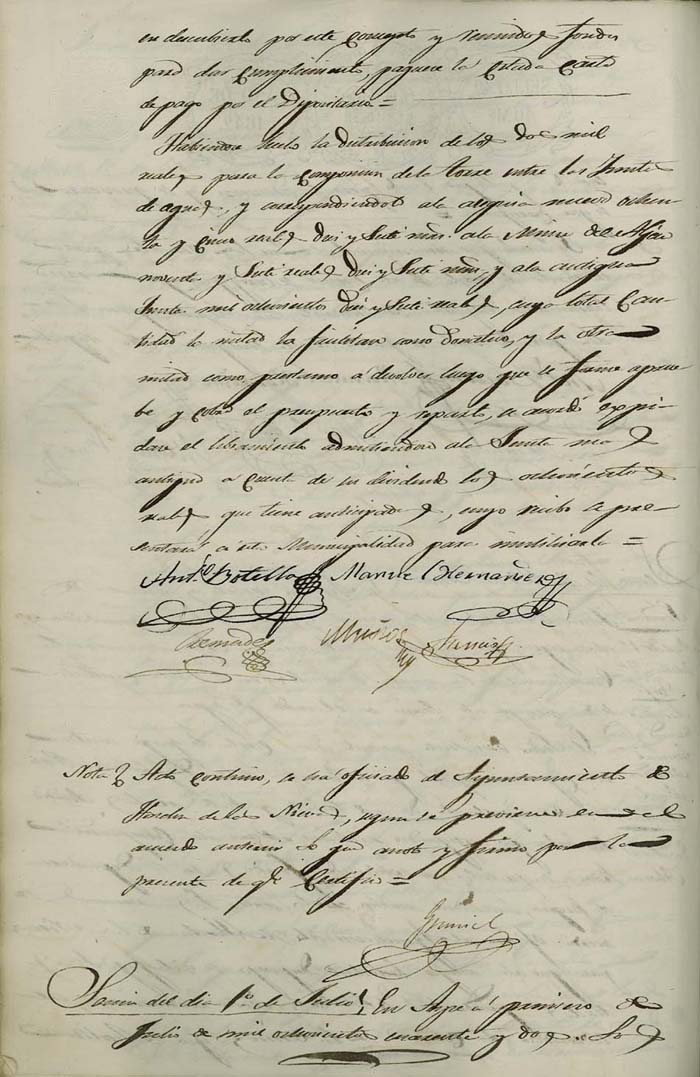 en descubierto por este concepto y reunidos fondos
para dar cumplimiento, paguese la citada carta
de pago por el Depositario =
Habiendose hecho la distribucion de los dos mil
reales para la composicion de la torre entre las Juntas
de aguas, y correspondiendo a la alequia nueva ochen-
ta y cinco reales diez y siete mrs. a la Mina de
noventa y siete reales diez y siete mrs, y a la antigua
Junta mil ochocientos diez y siete reales, cuya total can-
tidad la mitad la facilitan como donativo, y la otra
mitad como prestamo a devolver luego que se forme aprue-
be y cobre el presupuesto y reparto, se acordó expi-
dase el libramiento admitiendose a la Junta mas
antigua a cuenta de su dividendo los ochocientos
reales que tiene anticipados, cuyo recibo se pre-
sentará a esta Municipalidad para inutilizarle =
Ant.o Botella Manuel Hernandez
Muñoz
Nota Acto continuo, se ha oficiado al Ayuntamiento de
Hondon de las Nieves, segun se previene en el
acuerdo anterior lo que anoto y firmo por la
presente de q.e Certifico =
Sesion del dia 1.o de Julio. En Aspe á primero de
Julio de mil ochocientos cuarenta y dos. Los